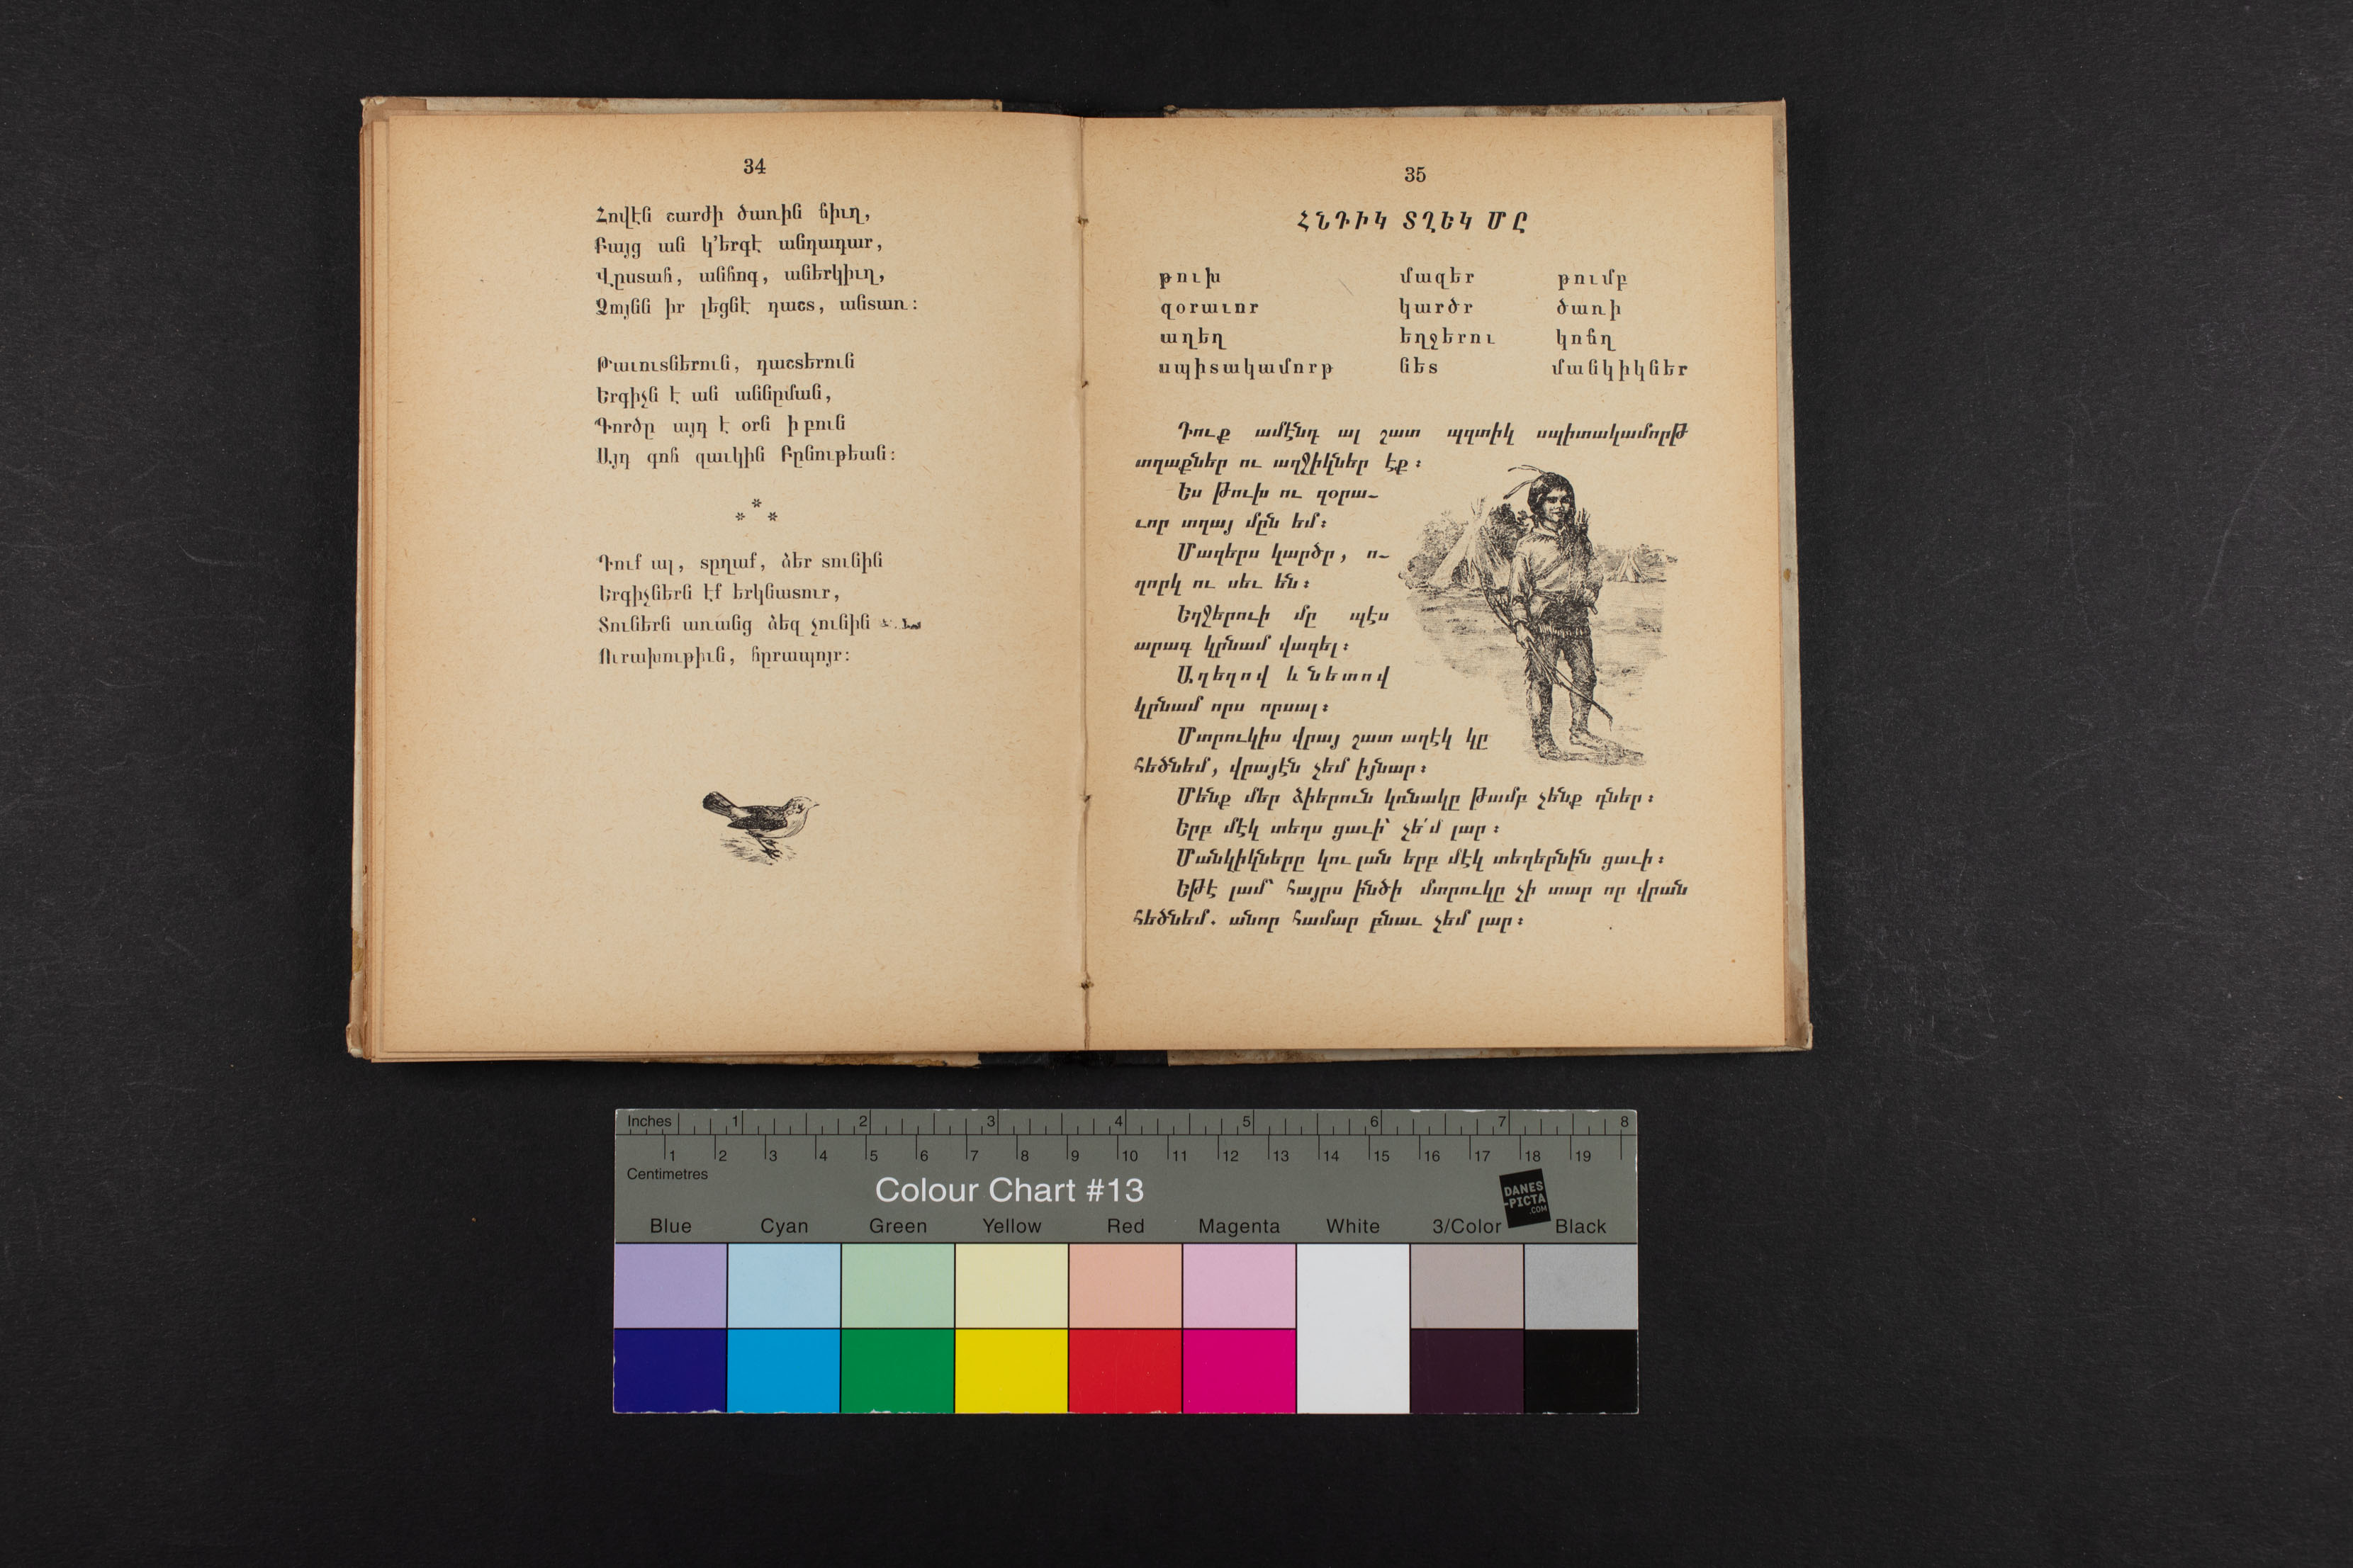 34
Հովէն շարժի ծառին ճիւղ,
Բայց ան կ'երգէ անդադար,
Վըստահ, անհոգ, աներկիւղ,
Ձայնն իր լեցնէ դաշտ, անտառ։
Թաւուտներուն, դաշտերուն
Երգիչն է ան աննըման,
Գործը այդ է օրն ի բուն
Այդ գոհ զաւկին Բընութեան։
* * *
Դուք ալ, տըղաք, ձեր տունին
Երգիչներն էք երկնատուր,
Տուներն առանց ձեզ չունին
Ուրախութիւն, հըրապոյր։
35
ՀՆԴԻԿ ՏՂԵԿ ՄԸ
թուխ մազեր թումբ
զօրաւոր կարծր ծառի
աղեղ եղջերու կոճղ
սպիտակամորթ նետ մանկիկներ
Դուք ամէնդ ալ շատ պզտիկ սպիտակամորթ
տղաքներ ու աղջիկներ էք։
Ես թուխ ու զօրա-
ւոր տղայ մըն եմ։
Մազերս կարծր, ո-
ղորկ ու սեւ են։
Եղջերուի մը պէս
արագ կրնամ վազել։
Աղեղով և նետով
կրնամ որս որսալ։
Մտրուկիս վրայ շատ աղէկ կը
հեծնեմ, վրայէն չեմ իյնար։
Մենք մեր ձիերուն կռնակը թամբ չենք դներ։
Երբ մէկ տեղս ցաւի՝ չե՛մ լար։
Մանկիկները կու լան երբ մէկ տեղերնին ցաւի։
Եթէ լամ՝ հայրս ինծի մտրուկը չի տար որ վրան
հեծնեմ. անոր համար բնաւ չեմ լար։
Inches 1 2 3 4 5 6 7 8
1 2 3 4 5 6 7 8 9 10 11 12 13 14 15 16 17 18 19
Centimetres
Colour Chart #13
DANES
-PICTA
.COM
Blue Cyan Green Yellow Red Magenta White 3/Color Black